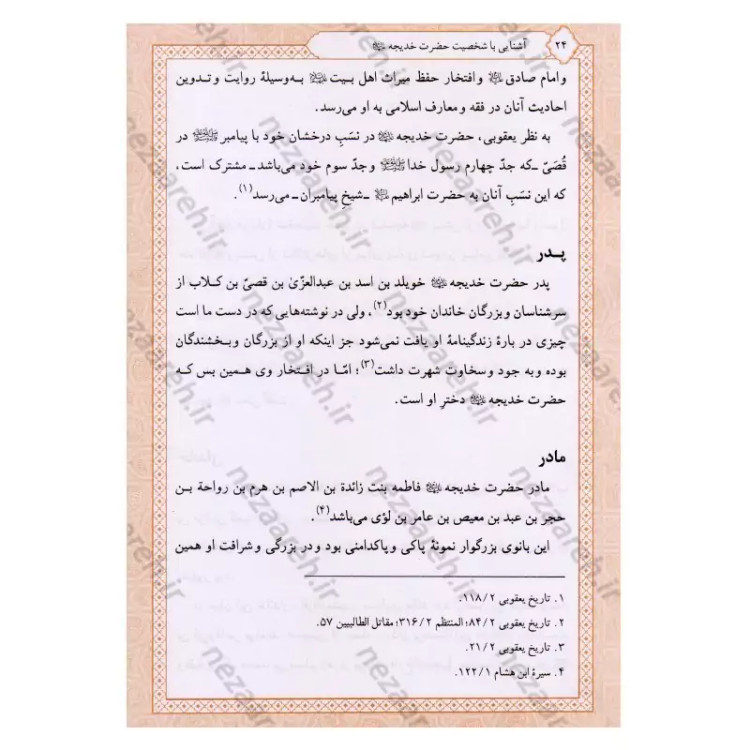 ۲۴
آشنایی با شخصیت حضرت خدیجه
وامام صادق وافتخار حفظ میراث اهل بیت به‌وسیلهٔ روایت و تدوین
احادیث آنان در فقه و معارف اسلامی به او می‌رسد.
به نظر یعقوبی، حضرت خدیجه در نسَبِ درخشان خود با پیامبر در
قُصَیّ ـ‌که جدّ چهارم رسول خدا و جدّ سوم خود می‌باشد ـ مشترک است،
که این نسَبِ آنان به حضرت ابراهیم ـ‌شیخِ پیامبران ـ می‌رسد(۱).
پـدر
پدر حضرت خدیجه خویلد بن اسد بن عبدالعزّیٰ بن قصیّ بن کلاب از
سرشناسان وبزرگان خاندان خود بود(۲)، ولی در نوشته‌هایی که در دست ما است
چیزی در بارهٔ زندگینامهٔ او یافت نمی‌شود جز اینکه او از بزرگان وبخشندگان
بوده وبه جود وسخاوت شهرت داشت(۳)؛ امّا در افتخار وی همین بس که
حضرت خدیجه دخترِ او است.
مادر
مادر حضرت خدیجه فاطمه بنت زائدة بن الاصم بن هرم بن رواحة بن
حجر بن عبد بن معیص بن عامر بن لؤی می‌باشد(۴).
این بانوی بزرگوار نمونهٔ پاکی وپاکدامنی بود ودر بزرگی وشرافت او همین
۱. تاریخ یعقوبی ۱۱۸/۲.
۲. تاریخ یعقوبی ۸۴/۲؛ المنتظم ۳۱۶/۲؛ مقاتل الطالبیین ۵۷.
۳. تاریخ یعقوبی ۲۱/۲.
۴. سیرهٔ ابن هشام ۱۲۲/۱.
nezaareh.ir